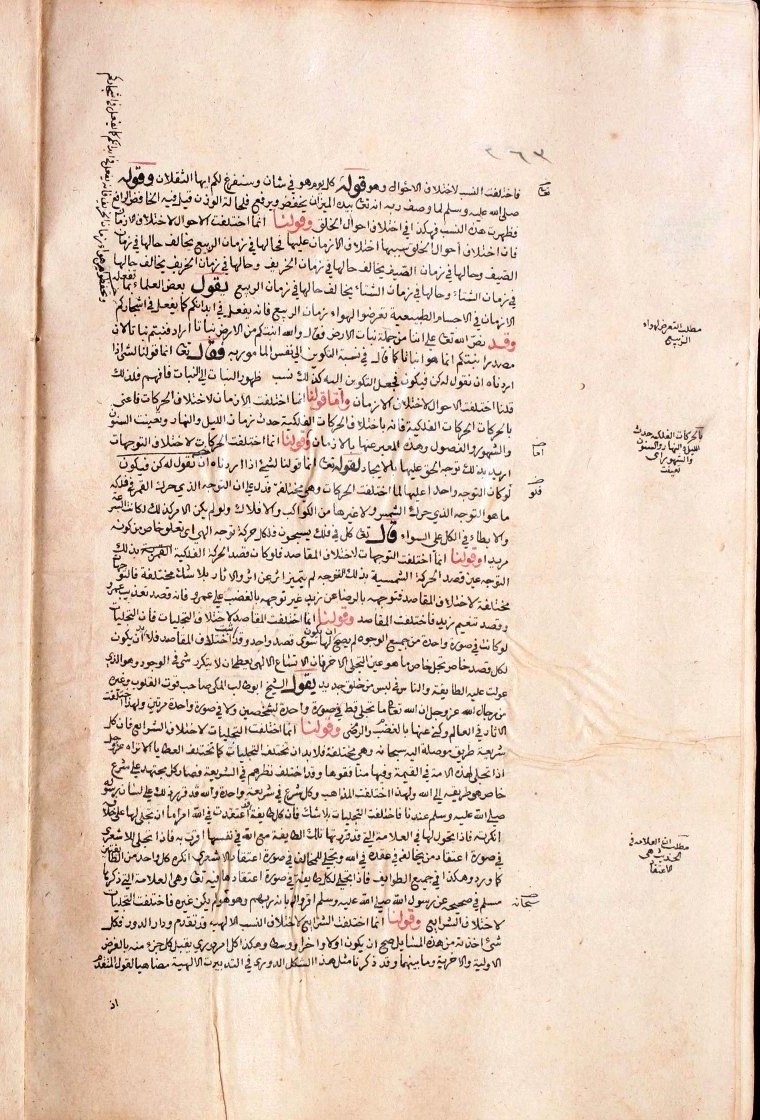 ٢٦٣
فاختلفت النسب لاختلاف الاحوال وهو قوله كل يوم هو في شان وسنفرغ لكم ايها الثقلان وقوله
صلى الله عليه وسلم لما وصف ربه انه تعالى بيده الميزان يخفض ويرفع فلحالة الوزن قيل فيه الخافض الرافع
فظهرت هذه النسب فهكذا في اختلاف احوال الخلق وقولنا انما اختلفت الاحوال لاختلاف الازمان
فان اختلاف أحوال الخلق سببها اختلاف الازمان عليها فحالها في زمان الربيع يخالف حالها في زمان
الصيف وحالها في زمان الصيف يخالف حالها في زمان الخريف وحالها في زمان الخريف يخالف حالها
في زمان الشتاء وحالها في زمان الشتاء يخالف حالها في زمان الربيع يقول بعض العلماء بما تفعله
الازمان في الاجسام الطبيعية تعرضوا لهواء زمان الربيع فانه يفعل في ابدانكم كما يفعل في اشجاركم
وقد نص الله تعالى على اننا من جملة نبات الارض فقال والله انبتكم من الارض نباتا أراد فنبتم نباتا لان
مصدر انبتكم انما هو انباتا كما قال في نسبة التكوين الى نفس المامور به فقال تعالى انما قولنا لشئ اذا
اردناه ان نقول له كن فيكون فجعل التكوين اليه كذلك نسب ظهور النبات الى النبات فافهم فلذلك
قلنا اختلفت الاحوال لاختلاف الازمان وأما قولنا انما اختلفت الازمان لاختلاف الحركات فاعني
بالحركات الحركات الفلكية فانه باختلاف الحركات الفلكية حدث زمان الليل والنهار وتعينت السنون
والشهور والفصول وهذه المعبر عنها بالازمان وقولنا انما اختلفت الحركات لاختلاف التوجهات
اريد بذلك توجه الحق عليها بالايجاد لقوله تعالى انما قولنا لشئ اذا اردناه ان نقول له كن فيكون
لو كان التوجه واحدا عليها لما اختلفت الحركات وهي مختلفة فدل على ان التوجه الذي حرك القمر في فلكه
ما هو التوجه الذي حرك الشمس ولا غيرها من الكواكب والافلاك ولو لم يكن الامر كذلك لكانت السرعة
والابطاء في الكل على السواء قال تعالى كل في فلك يسبحون فلكل حركة توجه الهي اي تعلق خاص من كونه
مريدا وقولنا انما اختلفت التوجهات لاختلاف المقاصد فلو كان قصد الحركة الفلكية القمرية بذلك
التوجه عين قصد الحركة الشمسية بذلك التوجه لم يتميز اثر عن اثر والاثار بلا شك مختلفة فالتوجهات
مختلفة لاختلاف المقاصد فتوجهه بالرضا عن زيد غير توجهه بالغضب على عمرو فانه قصد تعذيب عمرو
وقصد تنعيم زيد فاختلفت المقاصد وقولنا انما اختلفت المقاصد لاختلاف التجليات فان التجليات
لو كانت في صورة واحدة من جميع الوجوه لم يصح ان يكون لها سوى قصد واحد وقد ثبت اختلاف المقاصد فلا بد ان يكون
لكل قصد خاص تجل خاص ما هو عين التجلي الاخر فان الاتساع الالهي يعطي ان لا يتكرر شئ في الوجود وهو الذي
عولت عليه الطايفة والناس في لبس من خلق جديد يقول الشيخ ابو طالب المكي صاحب قوت القلوب وغيره
من رجال الله عز وجل ان الله تعالى ما تجلى قط في صورة واحدة لشخصين ولا في صورة واحدة مرتين ولهذا اختلفت
الاثار في العالم وكنى عنها بالغضب والرضى وقولنا انما اختلفت التجليات لاختلاف الشرائع فان كل
شريعة طريق موصلة اليه سبحانه وهي مختلفة فلا بد ان تختلف التجليات كما تختلف العطايا الا تراه عز وجل
اذا تجلى لهذه الامة في القيمة وفيها منافقوها وقد اختلف نظرهم في الشريعة فصار كل مجتهد على شرع
خاص هو طريقه الى الله ولهذا اختلفت المذاهب وكل شرع في شريعة واحدة والله قد قرر ذلك على لسان رسوله
صلى الله عليه وسلم عندنا فاختلفت التجليات بلا شك فان كل طايفة قد اعتقدت في الله امرا ما ان تجلى لها على خلافه
انكرته فاذا تحول لها في العلامة التي قد قررتها تلك الطايفة مع الله في نفسها اقرت به فاذا تجلى للاشعري
في صورة اعتقاد من يخالفه في عقده في الله وتجلى للمخالف في صورة اعتقاد الاشعري انكره كل واحد من الطايفتين
كما ورد وهكذا في جميع الطوايف فاذا تجلى لكل طايفة في صورة اعتقادها فيه تعالى وهي العلامة التي ذكرها
مسلم في صحيحه عن رسول الله صلى الله عليه وسلم اقروا له بانه ربهم وهو هو لم يكن غيره فاختلفت التجليات
لاختلاف الشرائع وقولنا انما اختلفت الشرائع لاختلاف النسب الالهية قد تقدم ودار الدور فكل
شئ اخذته من هذه المسايل صح ان يكون اولا واخرا ووسطا وهكذا كل امر دوري يقبل كل جزء منه بالفرض
الاولية والاخرية وما بينهما وقد ذكرنا مثل هذا الشكل الدوري في التدبيرات الالهية مضاهيا لقول المتقدم
اذ
مطلب التعرض لهواء
الربيع
بالحركات الفلكية حدث
الليل والنهار والسنون
والشهور اي
تعينت
مطلب ان العلامة في
الحديث هي
الاعتقاد
اما
فلو
سبحانه